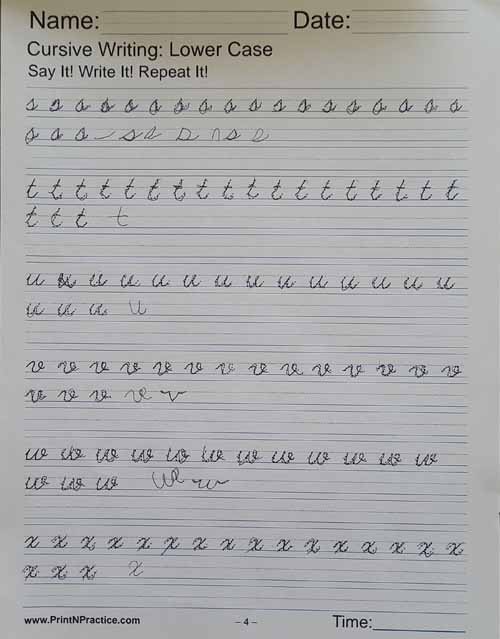 Name: Date:
Cursive Writing: Lower Case
Say It! Write It! Repeat It!
s s s s s s s s s s s s s s s s s s
s s s s s s s s
t t t t t t t t t t t t t t t t t t
t t t t
u u u u u u u u u u u u u u
u u u u
v v v v v v v v v v v v v v
v v v v v
w w w w w w w w w w w w
w w w w w
x x x x x x x x x x x x x x x x
x x x x
www.PrintNPractice.com – 4 – Time: